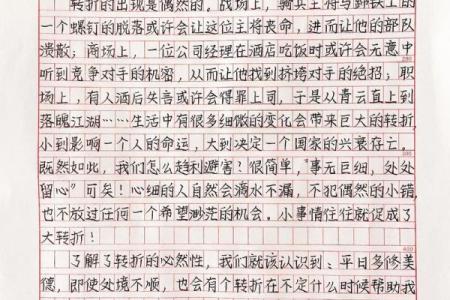 转折的出现是偶然的。战场上,骑兵主将马蹄铁上的
一个螺钉的脱落或许会让这位主将丧命,进而让他的部队
溃散;商场上,一位公司经理在酒店吃饭时或许会无意中
听到竞争对手的机密,从而让他找到挤垮对手的绝招;职
场上,有人酒后失言或许会得罪上司,于是从青云直上到
落魄江湖……生活中有很多细微的变化会带来巨大的转折,
小到影响一个人的命运,大到决定一个国家的兴衰存亡。
既然如此,我们怎么趋利避害?很简单,“事无巨细,处处
留心”可矣!心细的人自然会滴水不漏,不犯偶然的小错,
也不放过任何一个希望渺茫的机会。小事情往往就促成了
大转折!
400
了解了转折的必然性,我们就该认识到:平日多修美
德,即使处境不顺,也会有个转折在不定什么时候帮助我